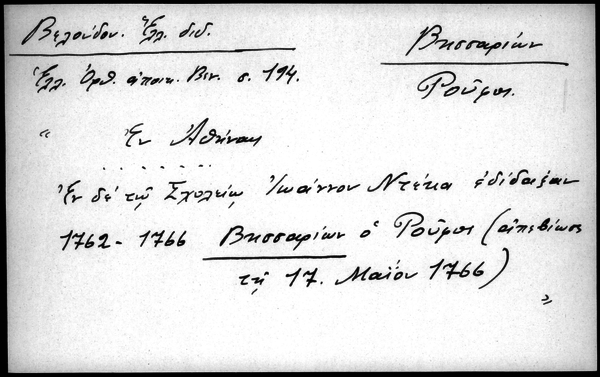 Βελούδου. Ἑλλ. διδ.
Βησσαρίων
Ῥοῦφος.
Ἑλλ. Ὀρθ. ἀποικ. Βεν. σ. 194.
“ Ἐν Ἀθήναις
. . . . . . .
Ἐν δέ τῷ Σχολείῳ Ἰωάννου Ντέκα ἐδίδαξαν
1762 - 1766 Βησσαρίων ὁ Ῥοῦφος (ἀπεβίωσε
τῇ 17. Μαΐου 1766)
”